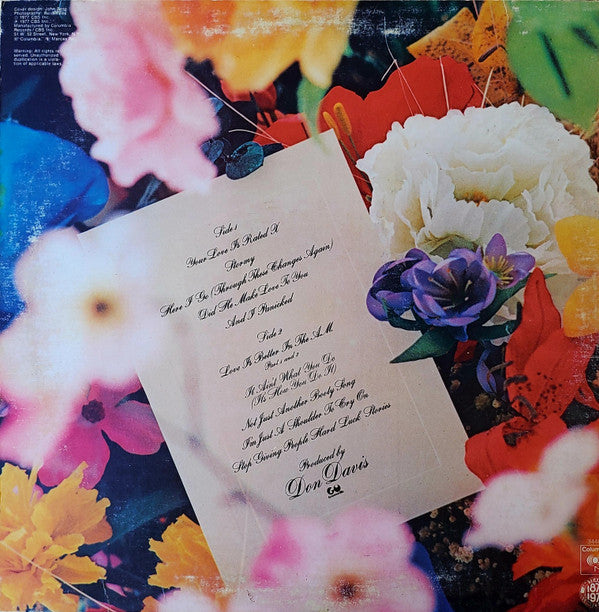 Cover design: John Berg
℗ 1977 CBS Inc.
Manufactured by Columbia
Records / CBS Inc.
51 W. 52 Street, New York, N.Y.
Warning: All rights re-
served. Unauthorized
duplication is a viola-
tion of applicable laws.
Side 1
Your Love Is Rated X
Stormy
Here I Go (Through These Changes Again)
Did He Make Love To You
And I Panicked
Side 2
Love Is Better In The A.M.
Part 1 and 2
It Ain't What You Do
(Its How You Do It)
Not Just Another Booty Song
I'm Just A Shoulder To Cry On
Stop Giving People Hard Luck Stories
Produced by
Don Davis